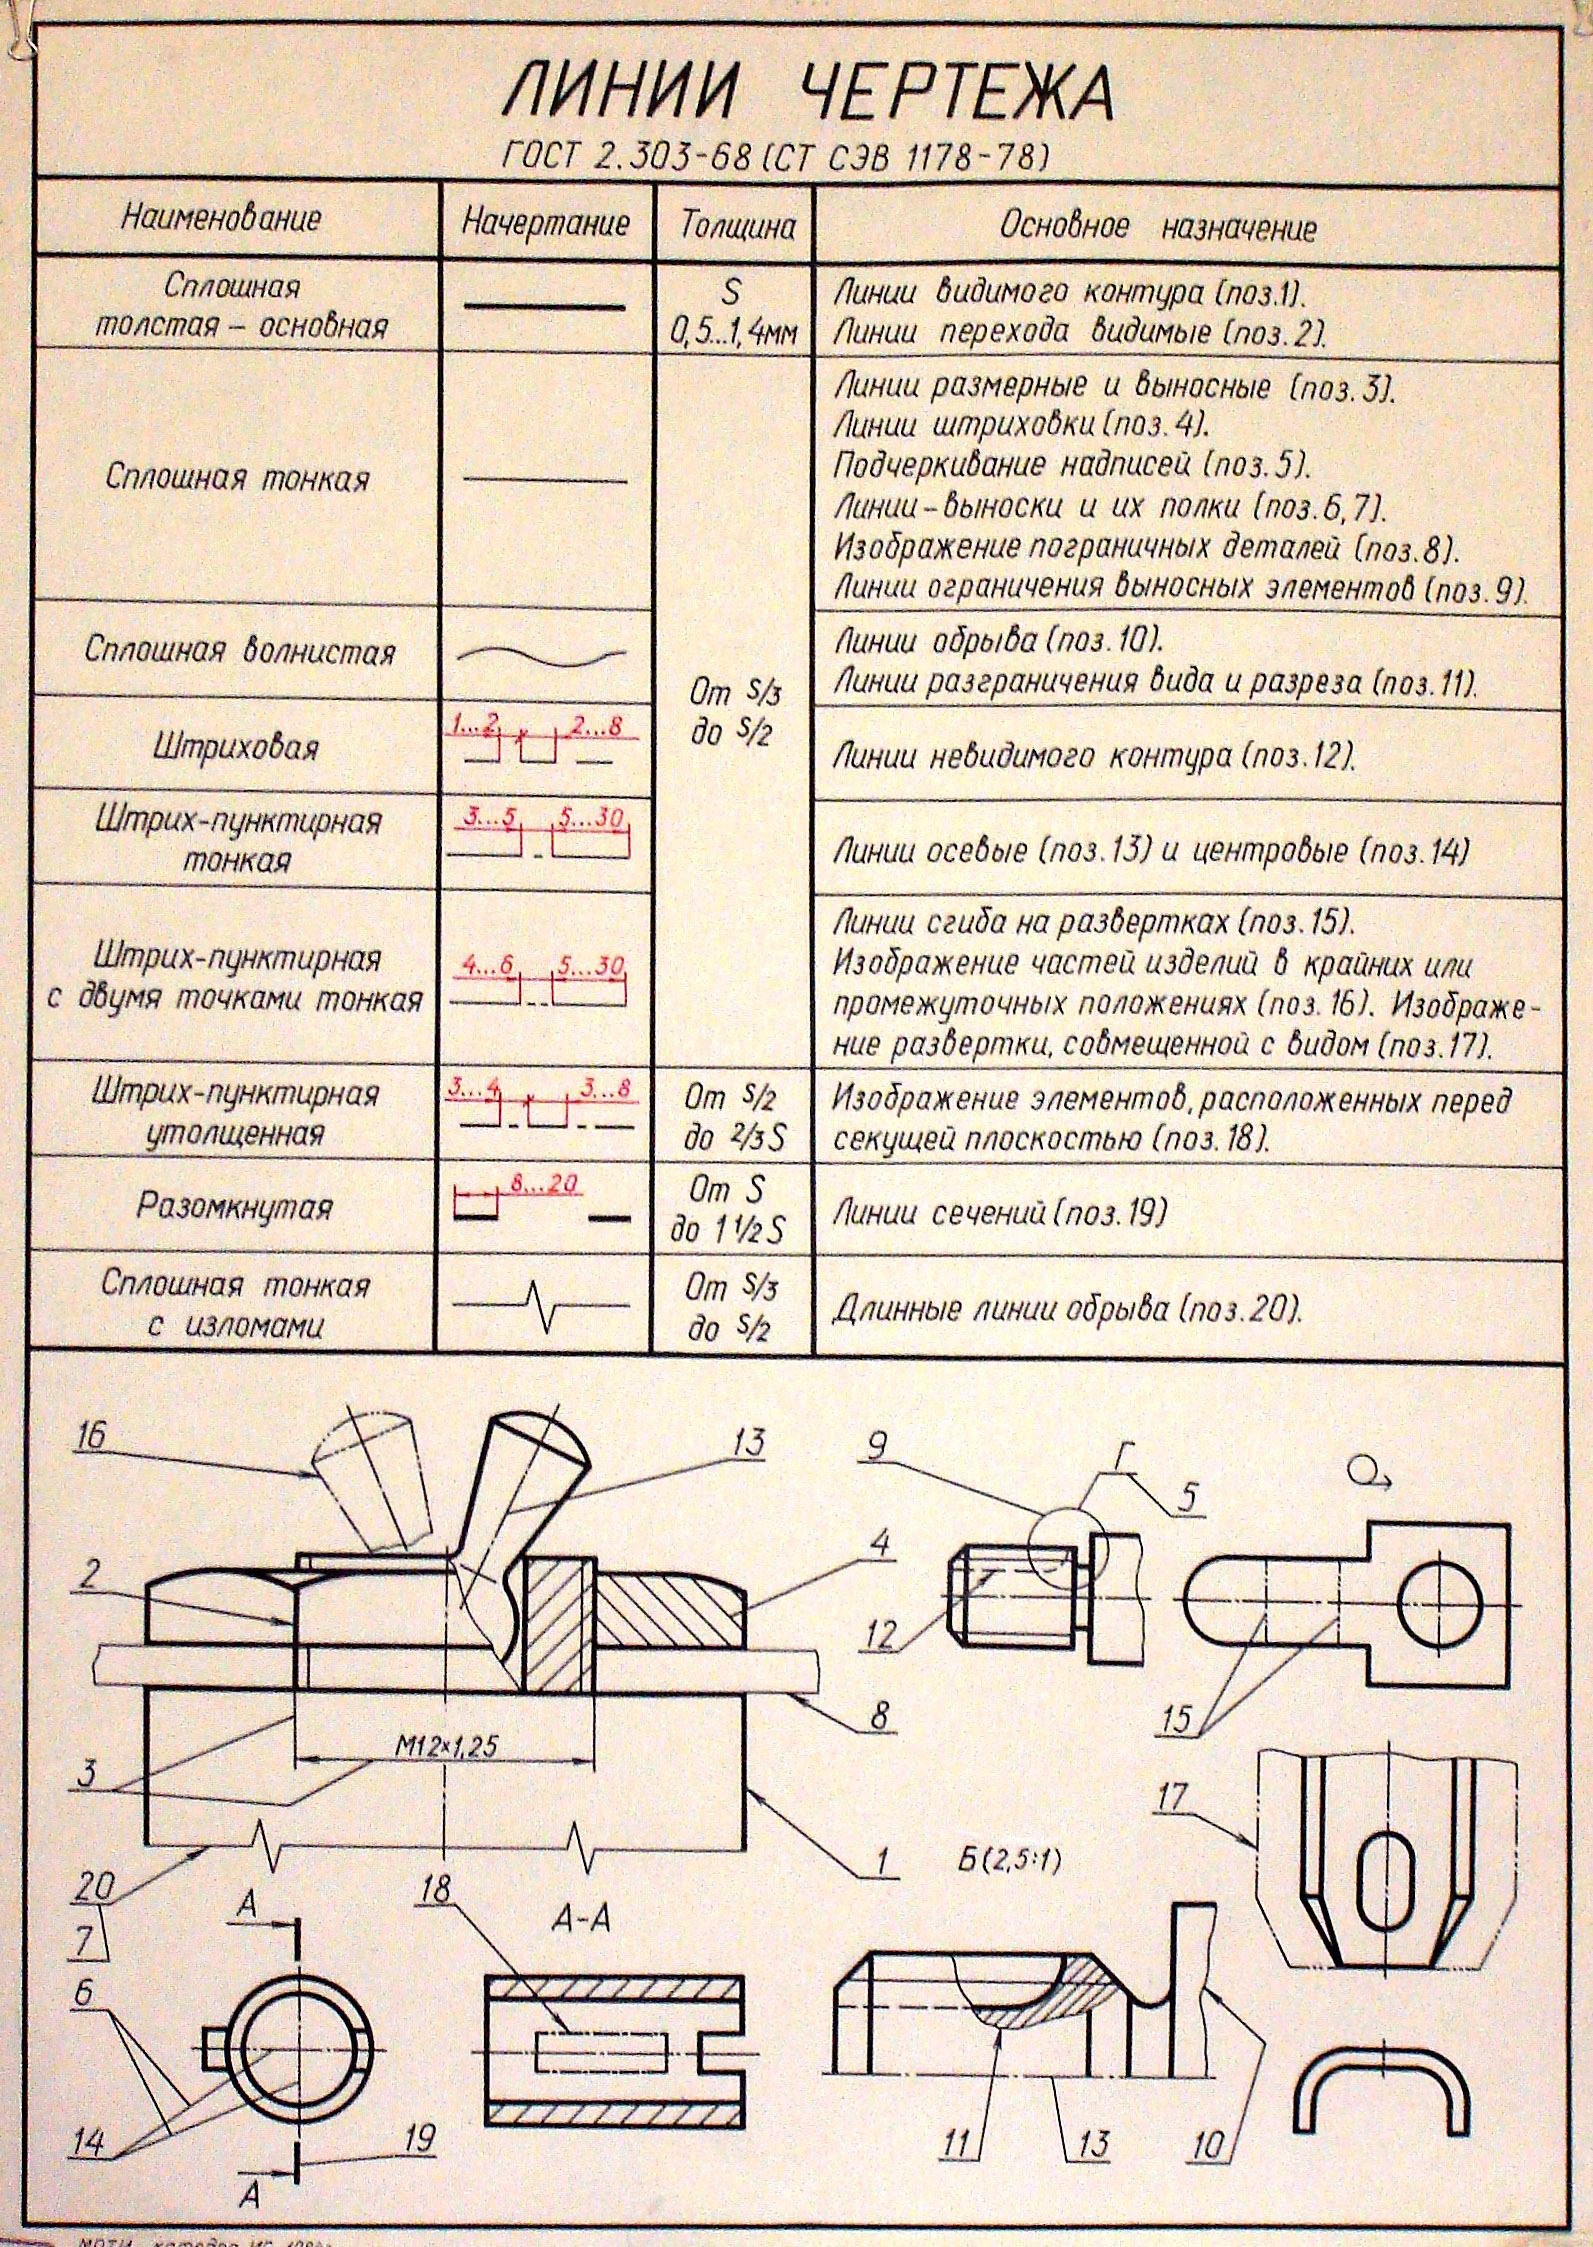 ЛИНИИ ЧЕРТЕЖА
ГОСТ 2.303-68 (СТ СЭВ 1178-78)
Наименование
Начертание
Толщина
Основное назначение
Сплошная
толстая – основная
S
0,5...1,4мм
Линии видимого контура (поз.1).
Линии перехода видимые (поз.2).
Сплошная тонкая
Линии размерные и выносные (поз.3).
Линии штриховки (поз.4).
Подчеркивание надписей (поз.5).
Линии-выноски и их полки (поз.6,7).
Изображение пограничных деталей (поз.8).
Линии ограничения выносных элементов (поз.9).
Сплошная волнистая
От S/3
до S/2
Линии обрыва (поз.10).
Линии разграничения вида и разреза (поз.11).
Штриховая
1...2
2...8
Линии невидимого контура (поз.12).
Штрих-пунктирная
тонкая
3...5
5...30
Линии осевые (поз.13) и центровые (поз.14)
Штрих-пунктирная
с двумя точками тонкая
4...6
5...30
Линии сгиба на развертках (поз.15).
Изображение частей изделий в крайних или
промежуточных положениях (поз.16). Изображе-
ние развертки, совмещенной с видом (поз.17).
Штрих-пунктирная
утолщенная
3...4
3...8
От S/2
до 2/3 S
Изображение элементов, расположенных перед
секущей плоскостью (поз.18).
Разомкнутая
8...20
От S
до 1 1/2 S
Линии сечений (поз.19)
Сплошная тонкая
с изломами
От S/3
до S/2
Длинные линии обрыва (поз.20).
16
13
9
Г
5
2
4
12
8
15
3
М12×1,25
17
1
Б(2,5:1)
20
7
А
18
А-А
6
14
19
А
11
13
10